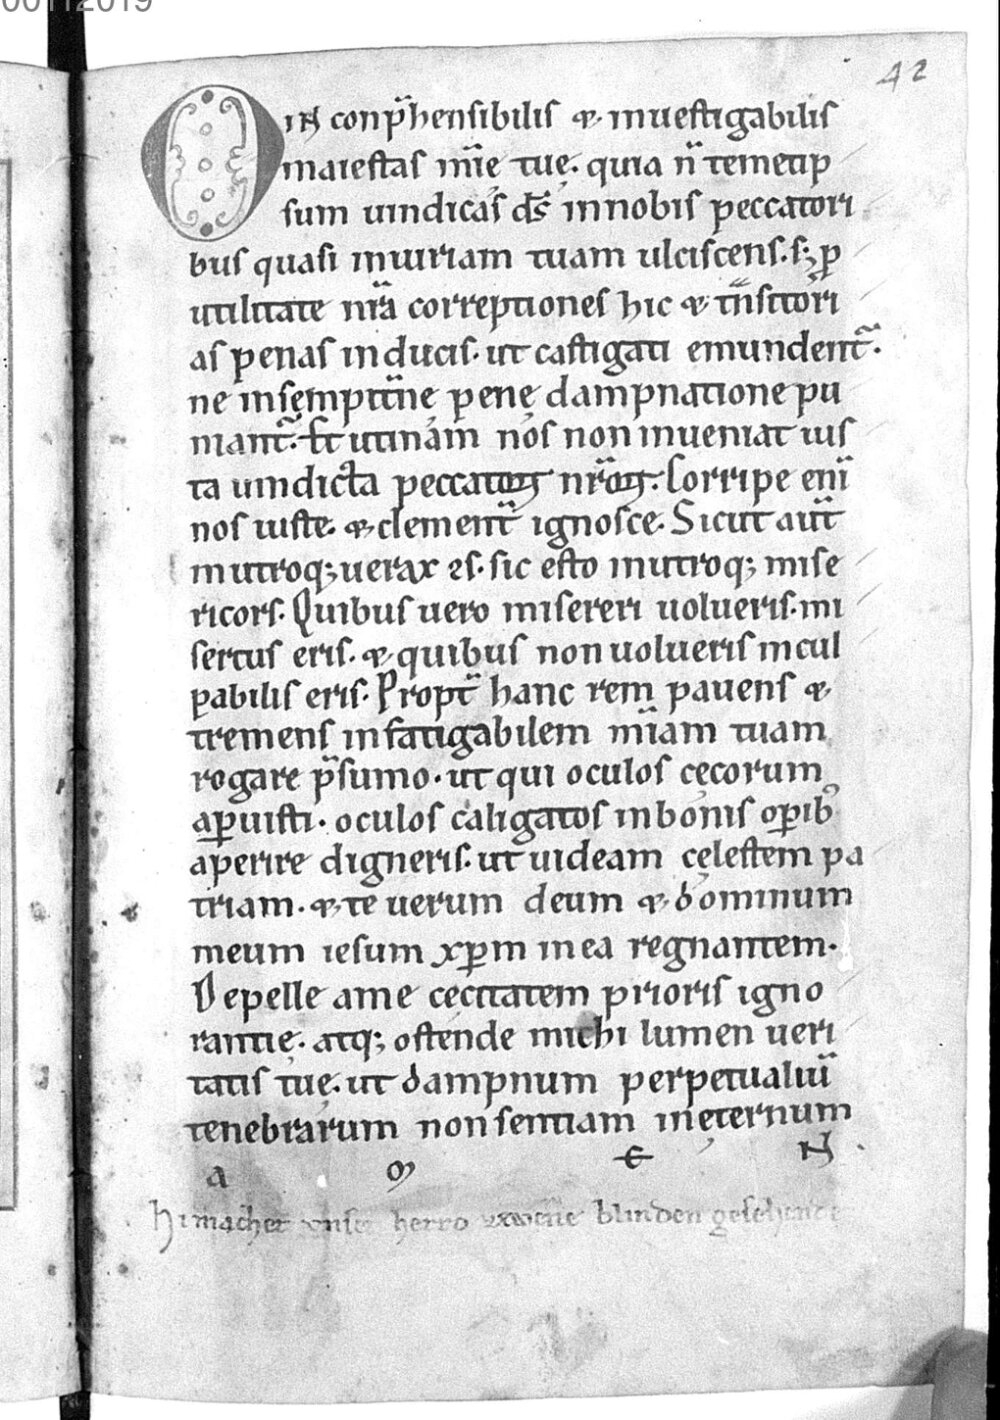 00112019
42
O inconp̄hensibilis & inuestigabilis
maiestas mīe tuę. quia n̄ temetip
sum uindicas ds̄ innobis peccatori
bus quasi iniuriam tuam ulciscens. s; p̱
utilitate nr̄a correptiones hic & t̄nsitori
as penas inducis. ut castigati emundent᷑.
ne insempit̄ne pene dampnatione pu
niant᷑. Et utinam nos non inueniat ius
ta uindicta peccatoꝝ nr̄oꝝ. Corripe eni᷑
nos iuste. & clement᷑ ignosce. Sicut aut᷑
inutroq; uerax es. sic esto inutroq; mise
ricors. Quibus uero misereri uolueris. mi
sertus eris. & quibus non uolueris incul
pabilis eris. Propt᷑ hanc rem pauens &
tremens infatigabilem mīam tuam
rogare p̄sumo. ut qui oculos cęcorum
aꝑuisti. oculos caligatos inbonis oꝑib
aperire digneris. ut uideam cęlestem pa
triam. & te uerum deum & dominum
meum iesum xp̄m in ea regnantem.
Depelle ame cecitatem prioris igno
rantię. atq; ostende michi lumen ueri
tatis tuę. ut dampnum perpetualiū
tenebrarum non sentiam inęternum
a m e N.
hi machet vnser herro blinden gesehende